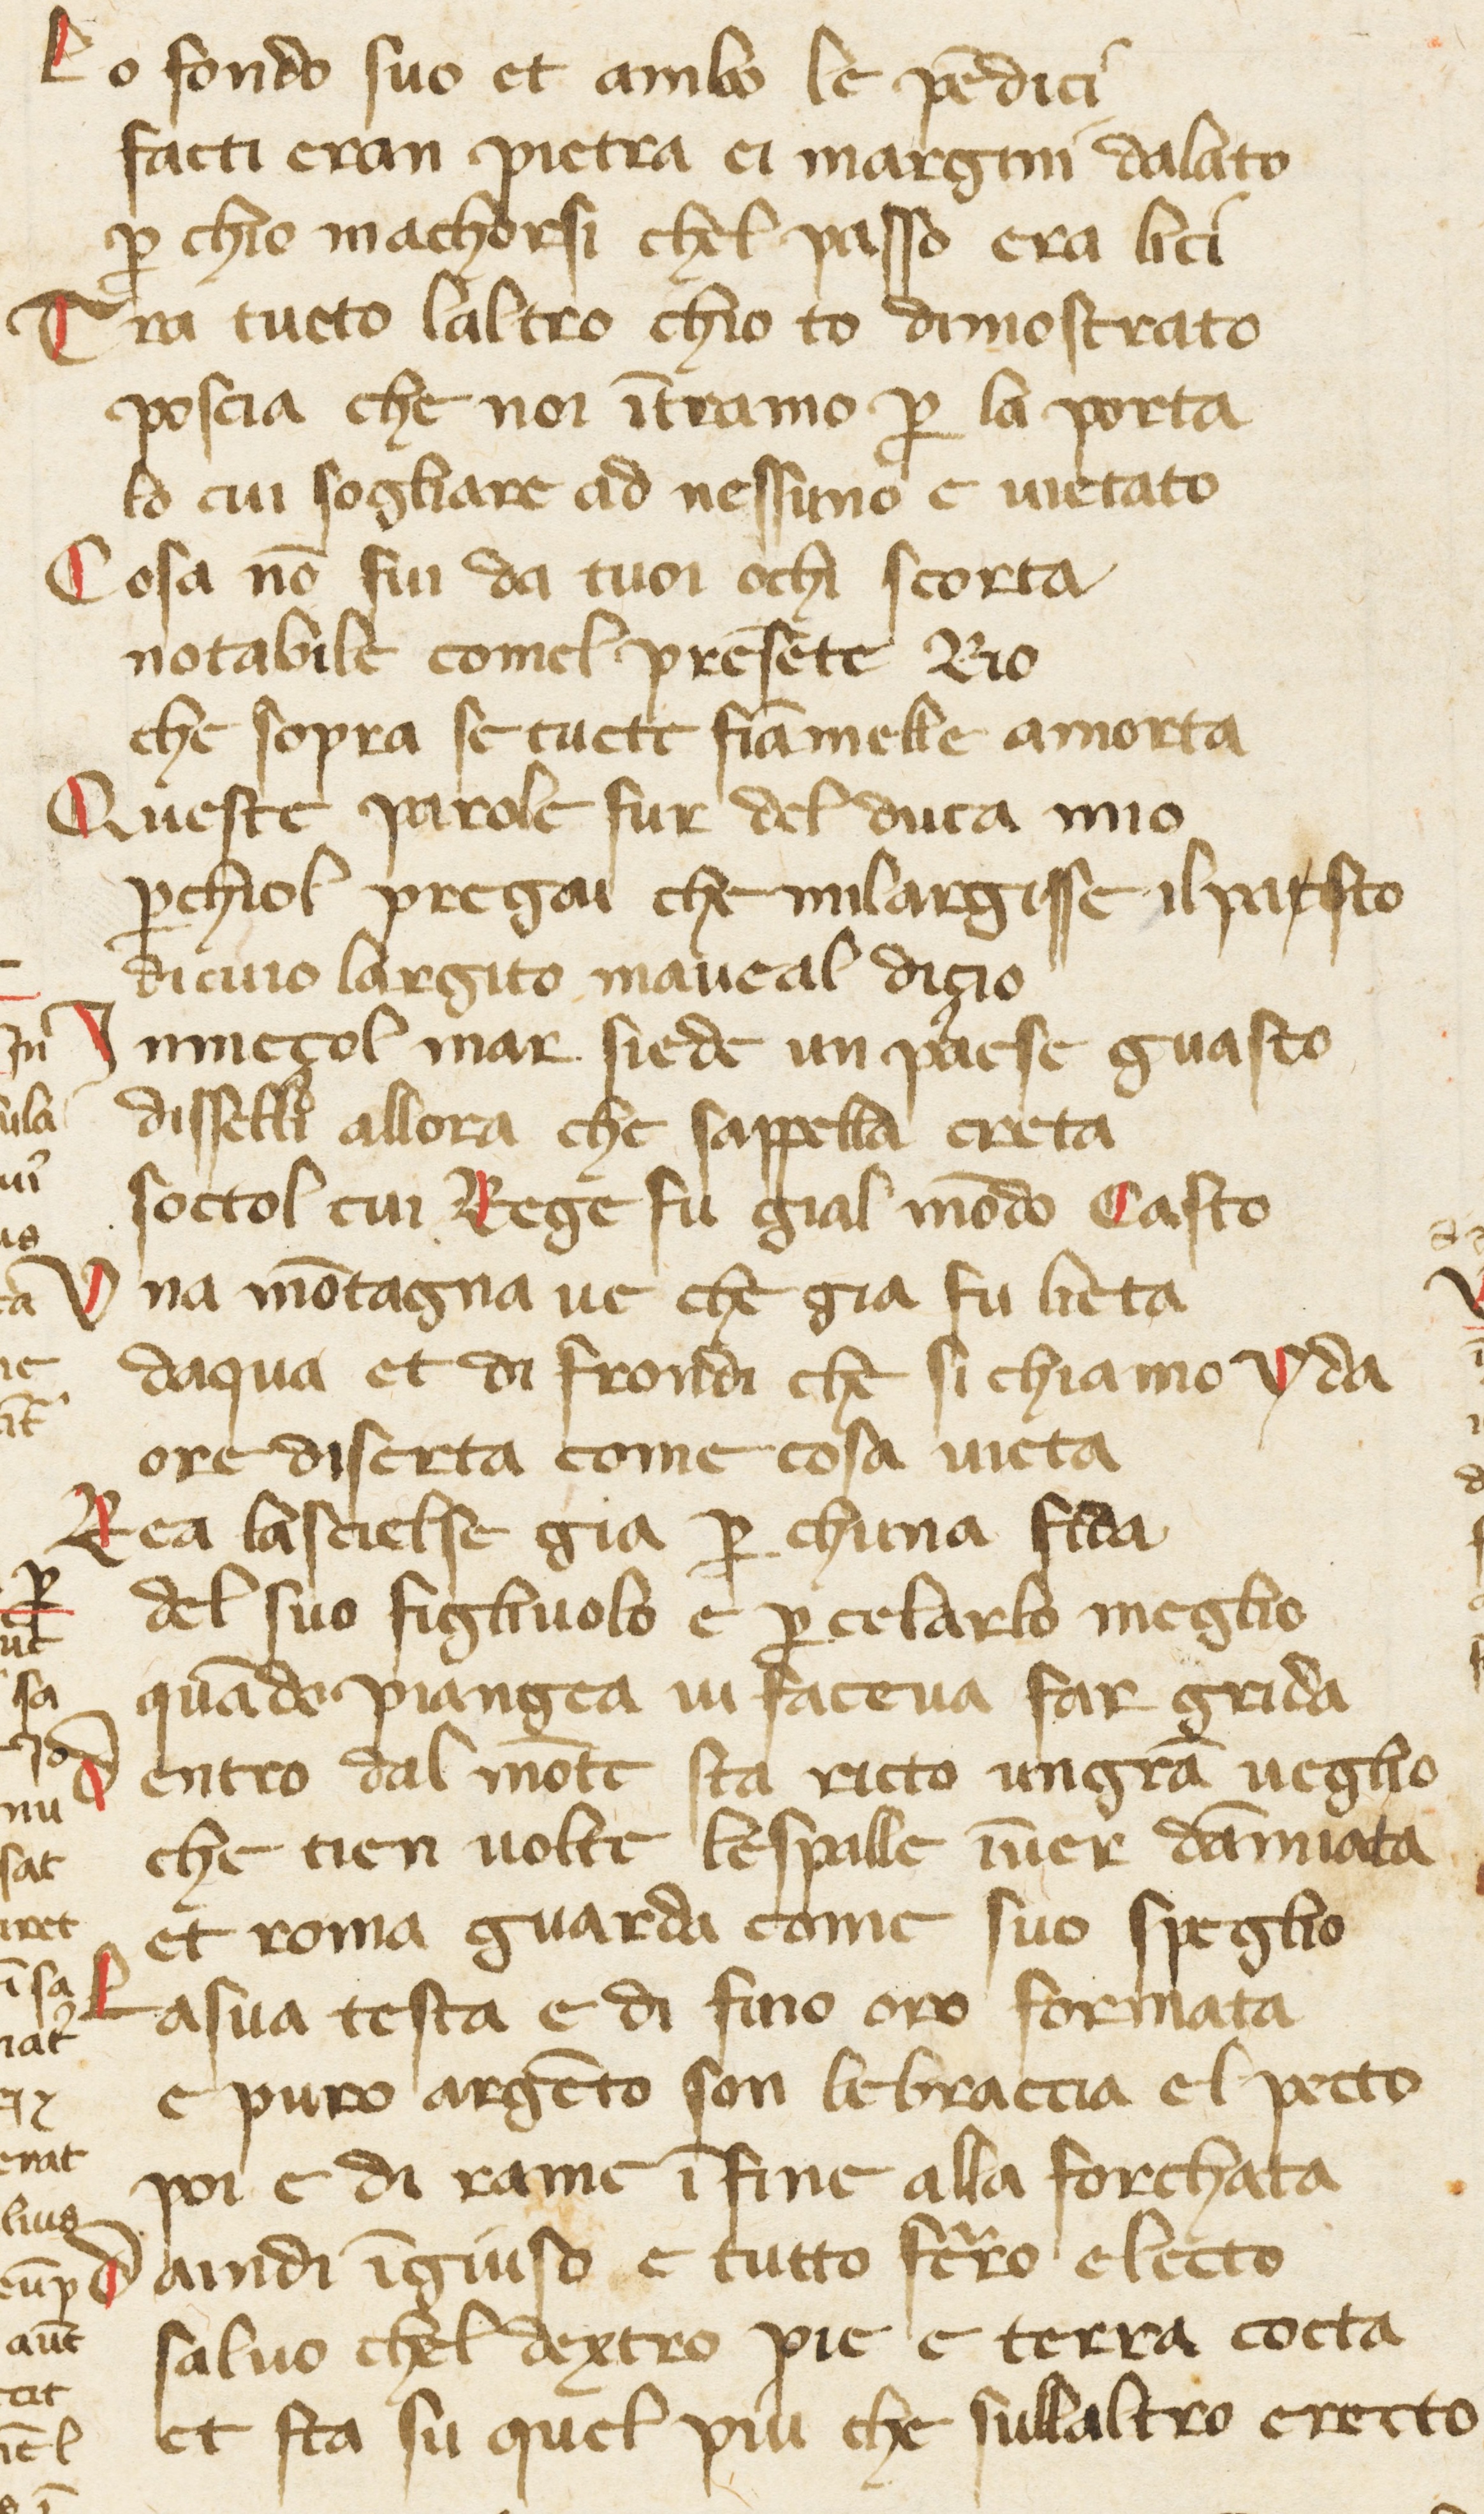 Lo fondo suo et ambo le pēdici
facti eran pietra ei margini dalato
ꝑ chio machorsi chel passo era lici
Tra tucto laltro chio to dimostrato
poscia che noi ītramo ꝑ la porta
lo cui sogliare ad nessuno e vietato
Cosa nō fui da tuoi ochi scorta
notabile comel presēte Rio
che sopra se tucte fiāmelle amorta
Queste parole fur del duca mio
ꝑchiol pregai che milargisse il pasto
dicuio largito maveal diçio
In
Inmeçol mar siede un paese guasto
disselli allora che sappella creta
soctol cui Rege fu gial mōdo Casto
Una mōtagna ve che gia fu lieta
daqua et di frondi che si chiamo yda
ore diserta come cosa vieta
Rea lascielse gia ꝑ chuna fida
del suo figliuolo e ꝑ celarlo meglio
quādo piangea vi faceva far grida
dentro dal mōte sta ricto un grā veglio
che tien volte le spalle īver dāmiata
et roma guarda come suo speglio
La sua testa e di fino oro formata
e puro argēto son le braccia el pecto
poi e di rame īfine alla forchata
da indi īgiuso e tutto ferro electo
salvo chel dextro pie e terra cocta
et sta su quel piu che sullaltro erecto